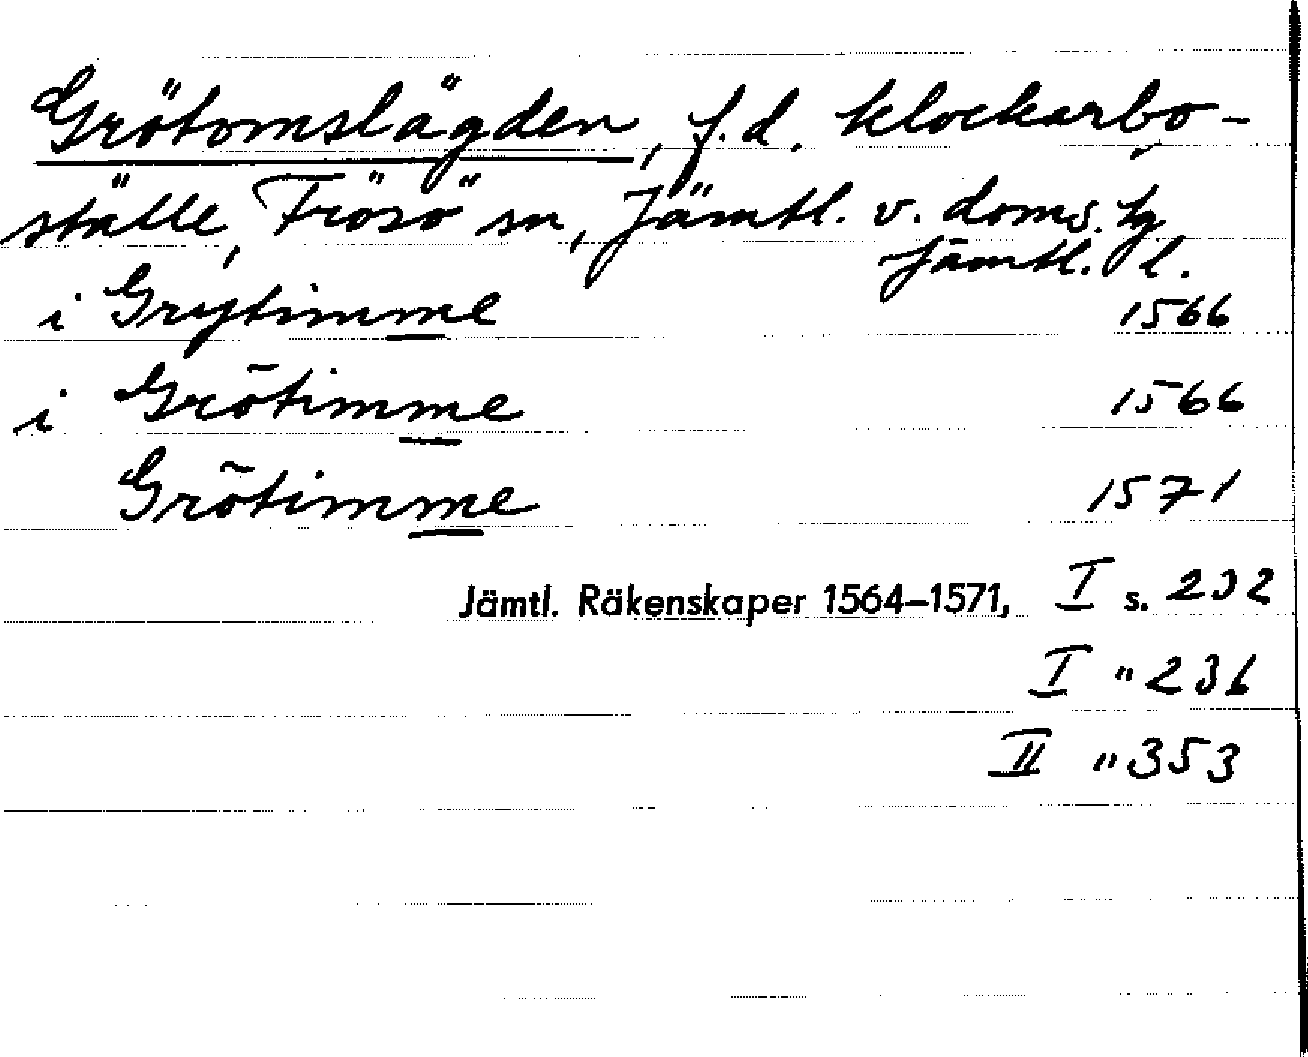 Grötomslägden, f.d. klockarbo-
ställe, Frösö sn, Jämtl. v. doms. tg
Jämtl. l.
i Grytimme 1566
i Grõtimme 1566
Grõtimme 1571
Jämtl. Räkenskaper 1564–1571, I s. 232
I " 236
II " 353